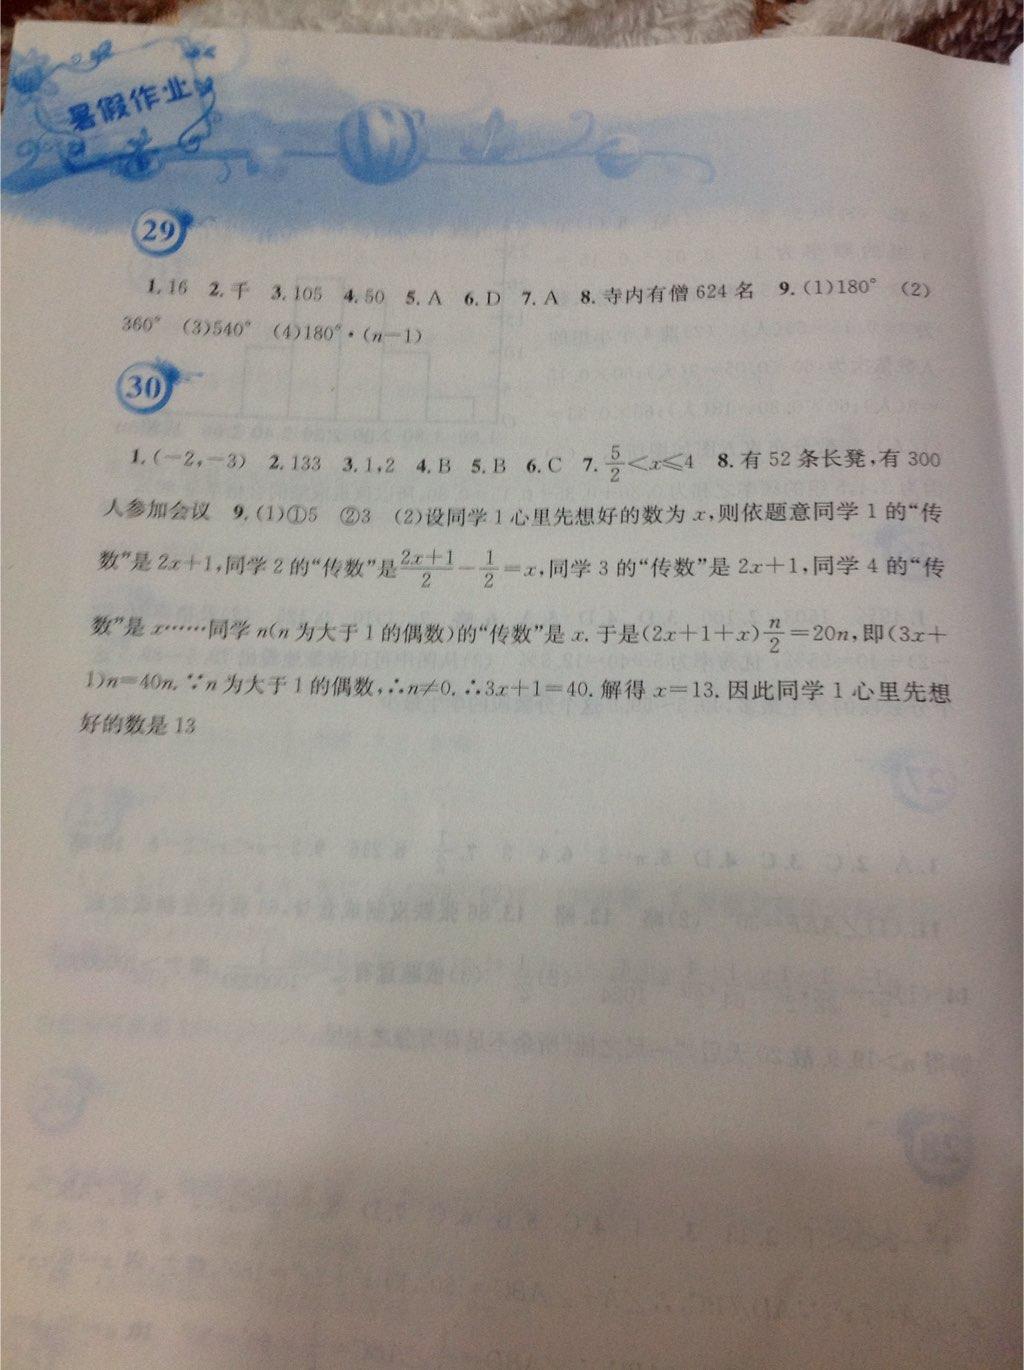 暑假作业
29
1. 16 2. 千 3. 105 4. 50 5. A 6. D 7. A 8. 寺内有僧 624 名 9. (1)180° (2)
360° (3)540° (4)180°·(n−1)
30
1. (−2,−3) 2. 133 3. 1,2 4. B 5. B 6. C 7. 5/2<x≤4 8. 有 52 条长凳,有 300
人参加会议 9. (1)①5 ②3 (2)设同学 1 心里先想好的数为 x,则依题意同学 1 的“传
数”是 2x+1,同学 2 的“传数”是(2x+1)/2−1/2=x,同学 3 的“传数”是 2x+1,同学 4 的“传
数”是 x……同学 n(n 为大于 1 的偶数)的“传数”是 x. 于是(2x+1+x)n/2=20n,即(3x+
1)n=40n. ∵n 为大于 1 的偶数,∴n≠0. ∴3x+1=40. 解得 x=13. 因此同学 1 心里先想
好的数是 13